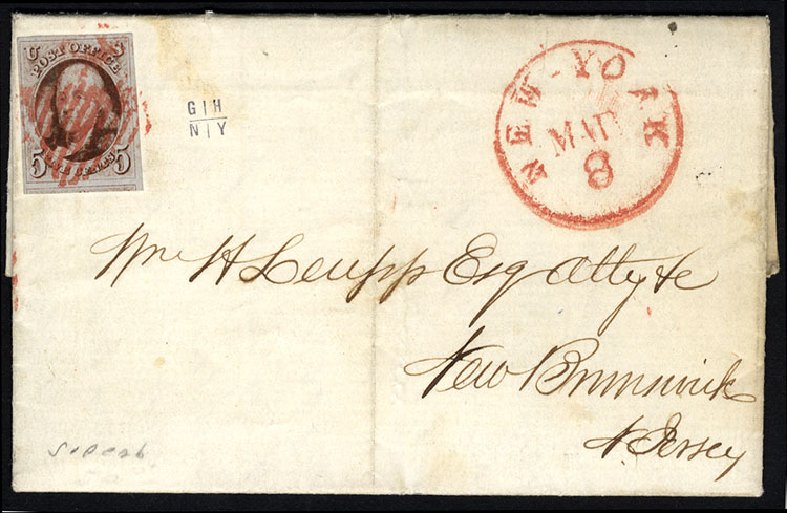 U S
POST OFFICE
5 FIVE CENTS 5
G|H
N|Y
NEW-YORK
MAR
8
Wm H Leupp Esq Atty &c
New Brunswick
N. Jersey